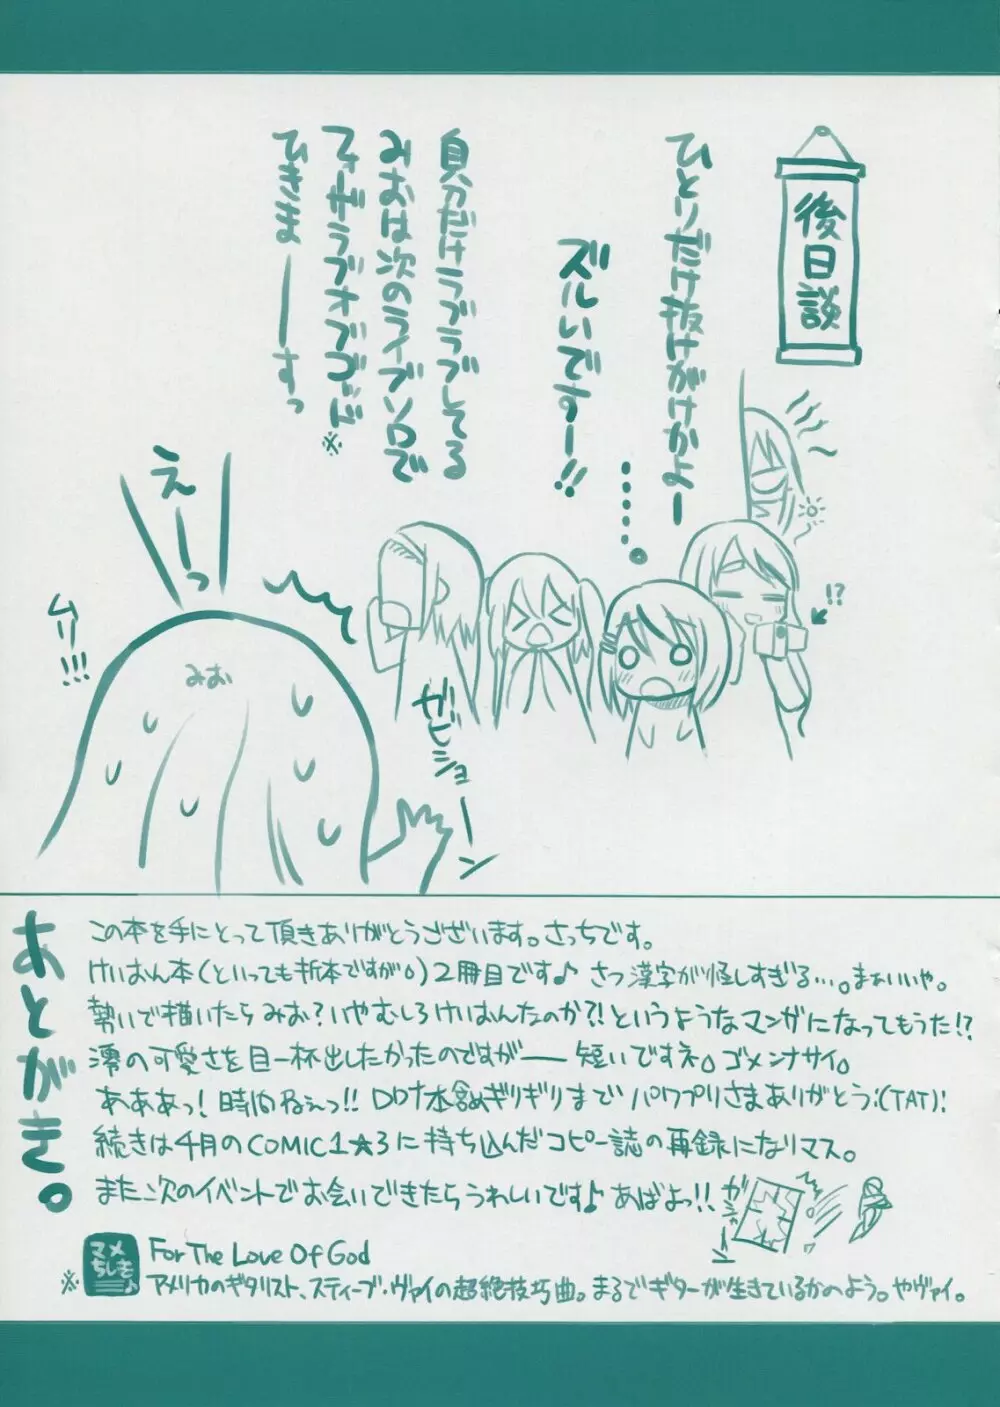 後日談
ひとりだけ抜けがけかよー
ズルいですー!!
・・・・・。
自分だけラブラブしてる
みおは次のライブソロで
フォーザラブオブゴッド※
ひきまーーーすっ
!?
えーーっ
ムリ!!!
みお
ガビショーン
あとがき。
この本を手にとって頂きありがとうございます。さっちです。
けいおん本(といっても折本ですが。)2冊目です♪ さっ漢字が怪しすぎる…。まぁいいや。
勢いで描いたらみお?いやむしろけいおんなのか?!というようなマンガになってもうた!?
澪の可愛さを目一杯出したかったのですがー 短いですネ。ゴメンナサイ。
あああっ!時間ねぇっ!! ギリギリまでパワプリさまありがとう!(TAT)!
続きは4月のCOMIC1★3に持ち込んだコピー誌の再録になりマス。
また次のイベントでお会いできたらうれしいです♪ あばよっ!!
マメちしき♪
For The Love Of God
※アメリカのギタリスト、スティーブ・ヴァイの超絶技巧曲。まるでギターが生きているかのよう。ヤヴァイ。